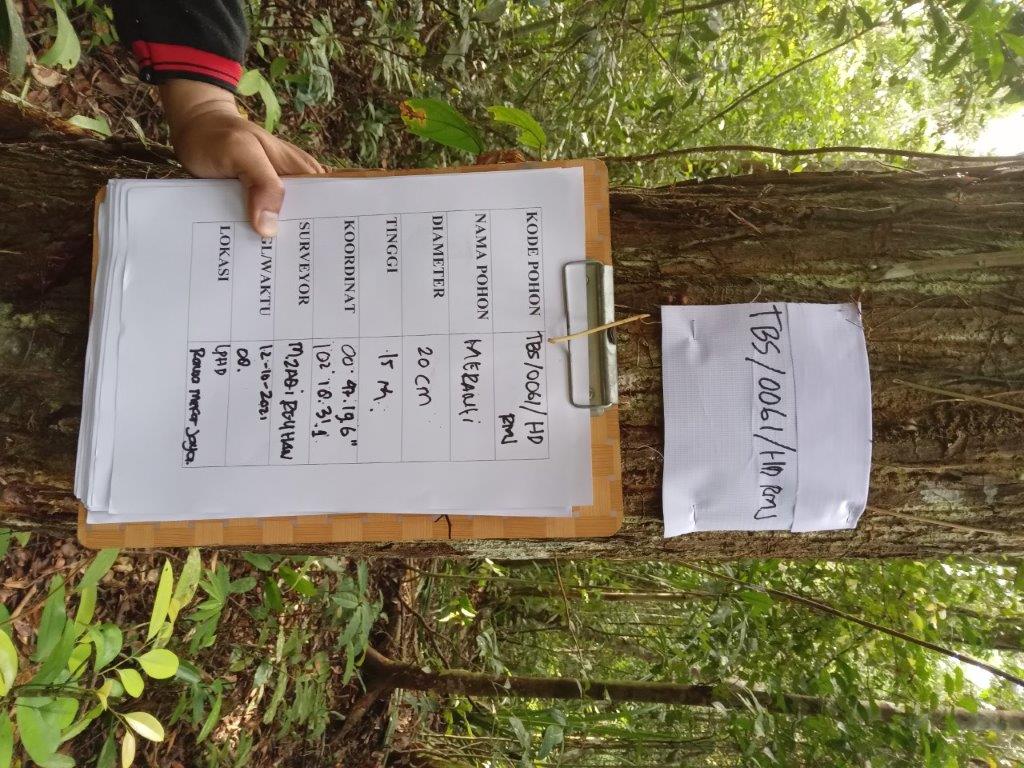 TBS/0061/HD RMJ
KODE POHON TBS/0061/HD
RMJ
NAMA POHON MERANTI
DIAMETER 20 cm
TINGGI 15 m.
KOORDINAT 00° 47' 19.6"
102° 18. 3'.1
SURVEYOR
GL/WAKTU 12-10-2021
08.
LOKASI LPHD
Rawa Mekar Jaya.